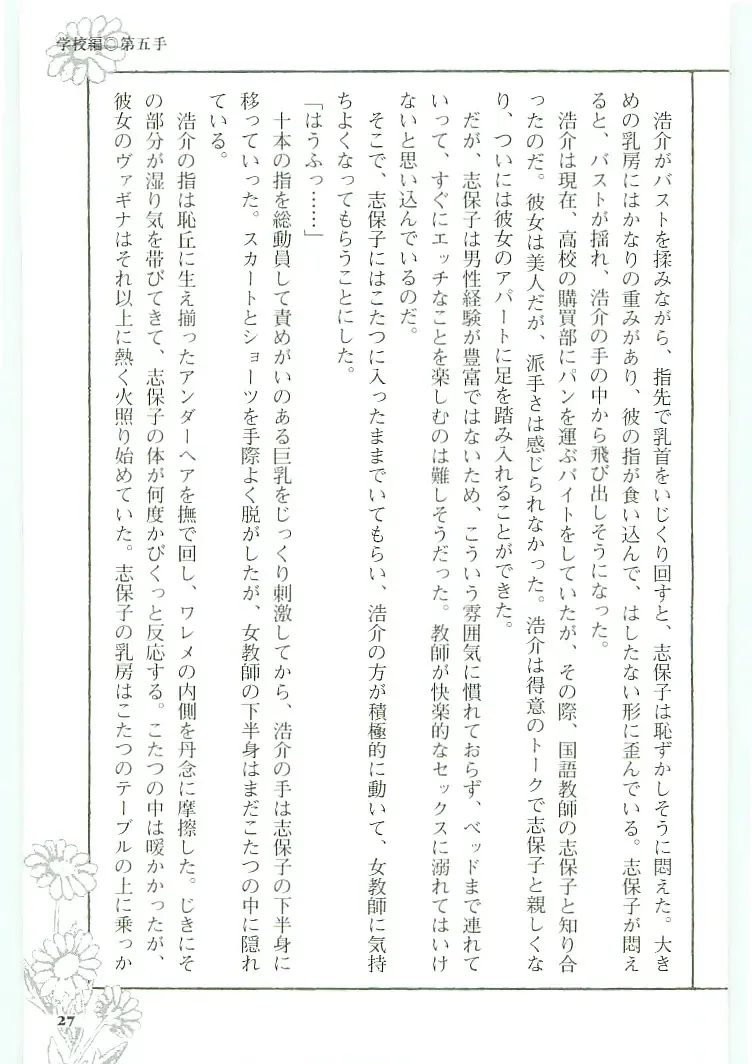 学校編◎第五手
浩介がバストを揉みながら、指先で乳首をいじくり回すと、志保子は恥ずかしそうに悶えた。大き
めの乳房にはかなりの重みがあり、彼の指が食い込んで、はしたない形に歪んでいる。志保子が悶え
ると、バストが揺れ、浩介の手の中から飛び出しそうになった。
浩介は現在、高校の購買部にパンを運ぶバイトをしていたが、その際、国語教師の志保子と知り合
ったのだ。彼女は美人だが、派手さは感じられなかった。浩介は得意のトークで志保子と親しくな
り、ついには彼女のアパートに足を踏み入れることができた。
だが、志保子は男性経験が豊富ではないため、こういう雰囲気に慣れておらず、ベッドまで連れて
いって、すぐにエッチなことを楽しむのは難しそうだった。教師が快楽的なセックスに溺れてはいけ
ないと思い込んでいるのだ。
そこで、志保子にはこたつに入ったままでいてもらい、浩介の方が積極的に動いて、女教師に気持
ちよくなってもらうことにした。
「はうふっ……」
十本の指を総動員して責めがいのある巨乳をじっくり刺激してから、浩介の手は志保子の下半身に
移っていった。スカートとショーツを手際よく脱がしたが、女教師の下半身はまだこたつの中に隠れ
ている。
浩介の指は恥丘に生え揃ったアンダーヘアを撫で回し、ワレメの内側を丹念に摩擦した。じきにそ
の部分が湿り気を帯びてきて、志保子の体が何度かびくっと反応する。こたつの中は暖かかったが、
彼女のヴァギナはそれ以上に熱く火照り始めていた。志保子の乳房はこたつのテーブルの上に乗っか
27